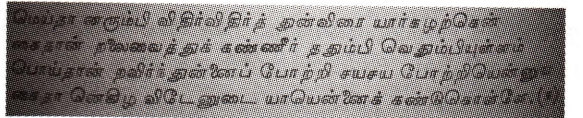 மெய்தா னரும்பி விதிர்விதிர்த் துன்விரை யார்கழற்கென்
கைதான் றலைவைத்துக் கண்ணீர் ததும்பி வெதும்பியுள்ளம்
பொய்தான் றவிர்ந்துன்னைப் போற்றி சயசய போற்றியென்னுங்
கைதா னெகிழ விடேனுடை யாயென்னைக் கண்டுகொள்ளே.